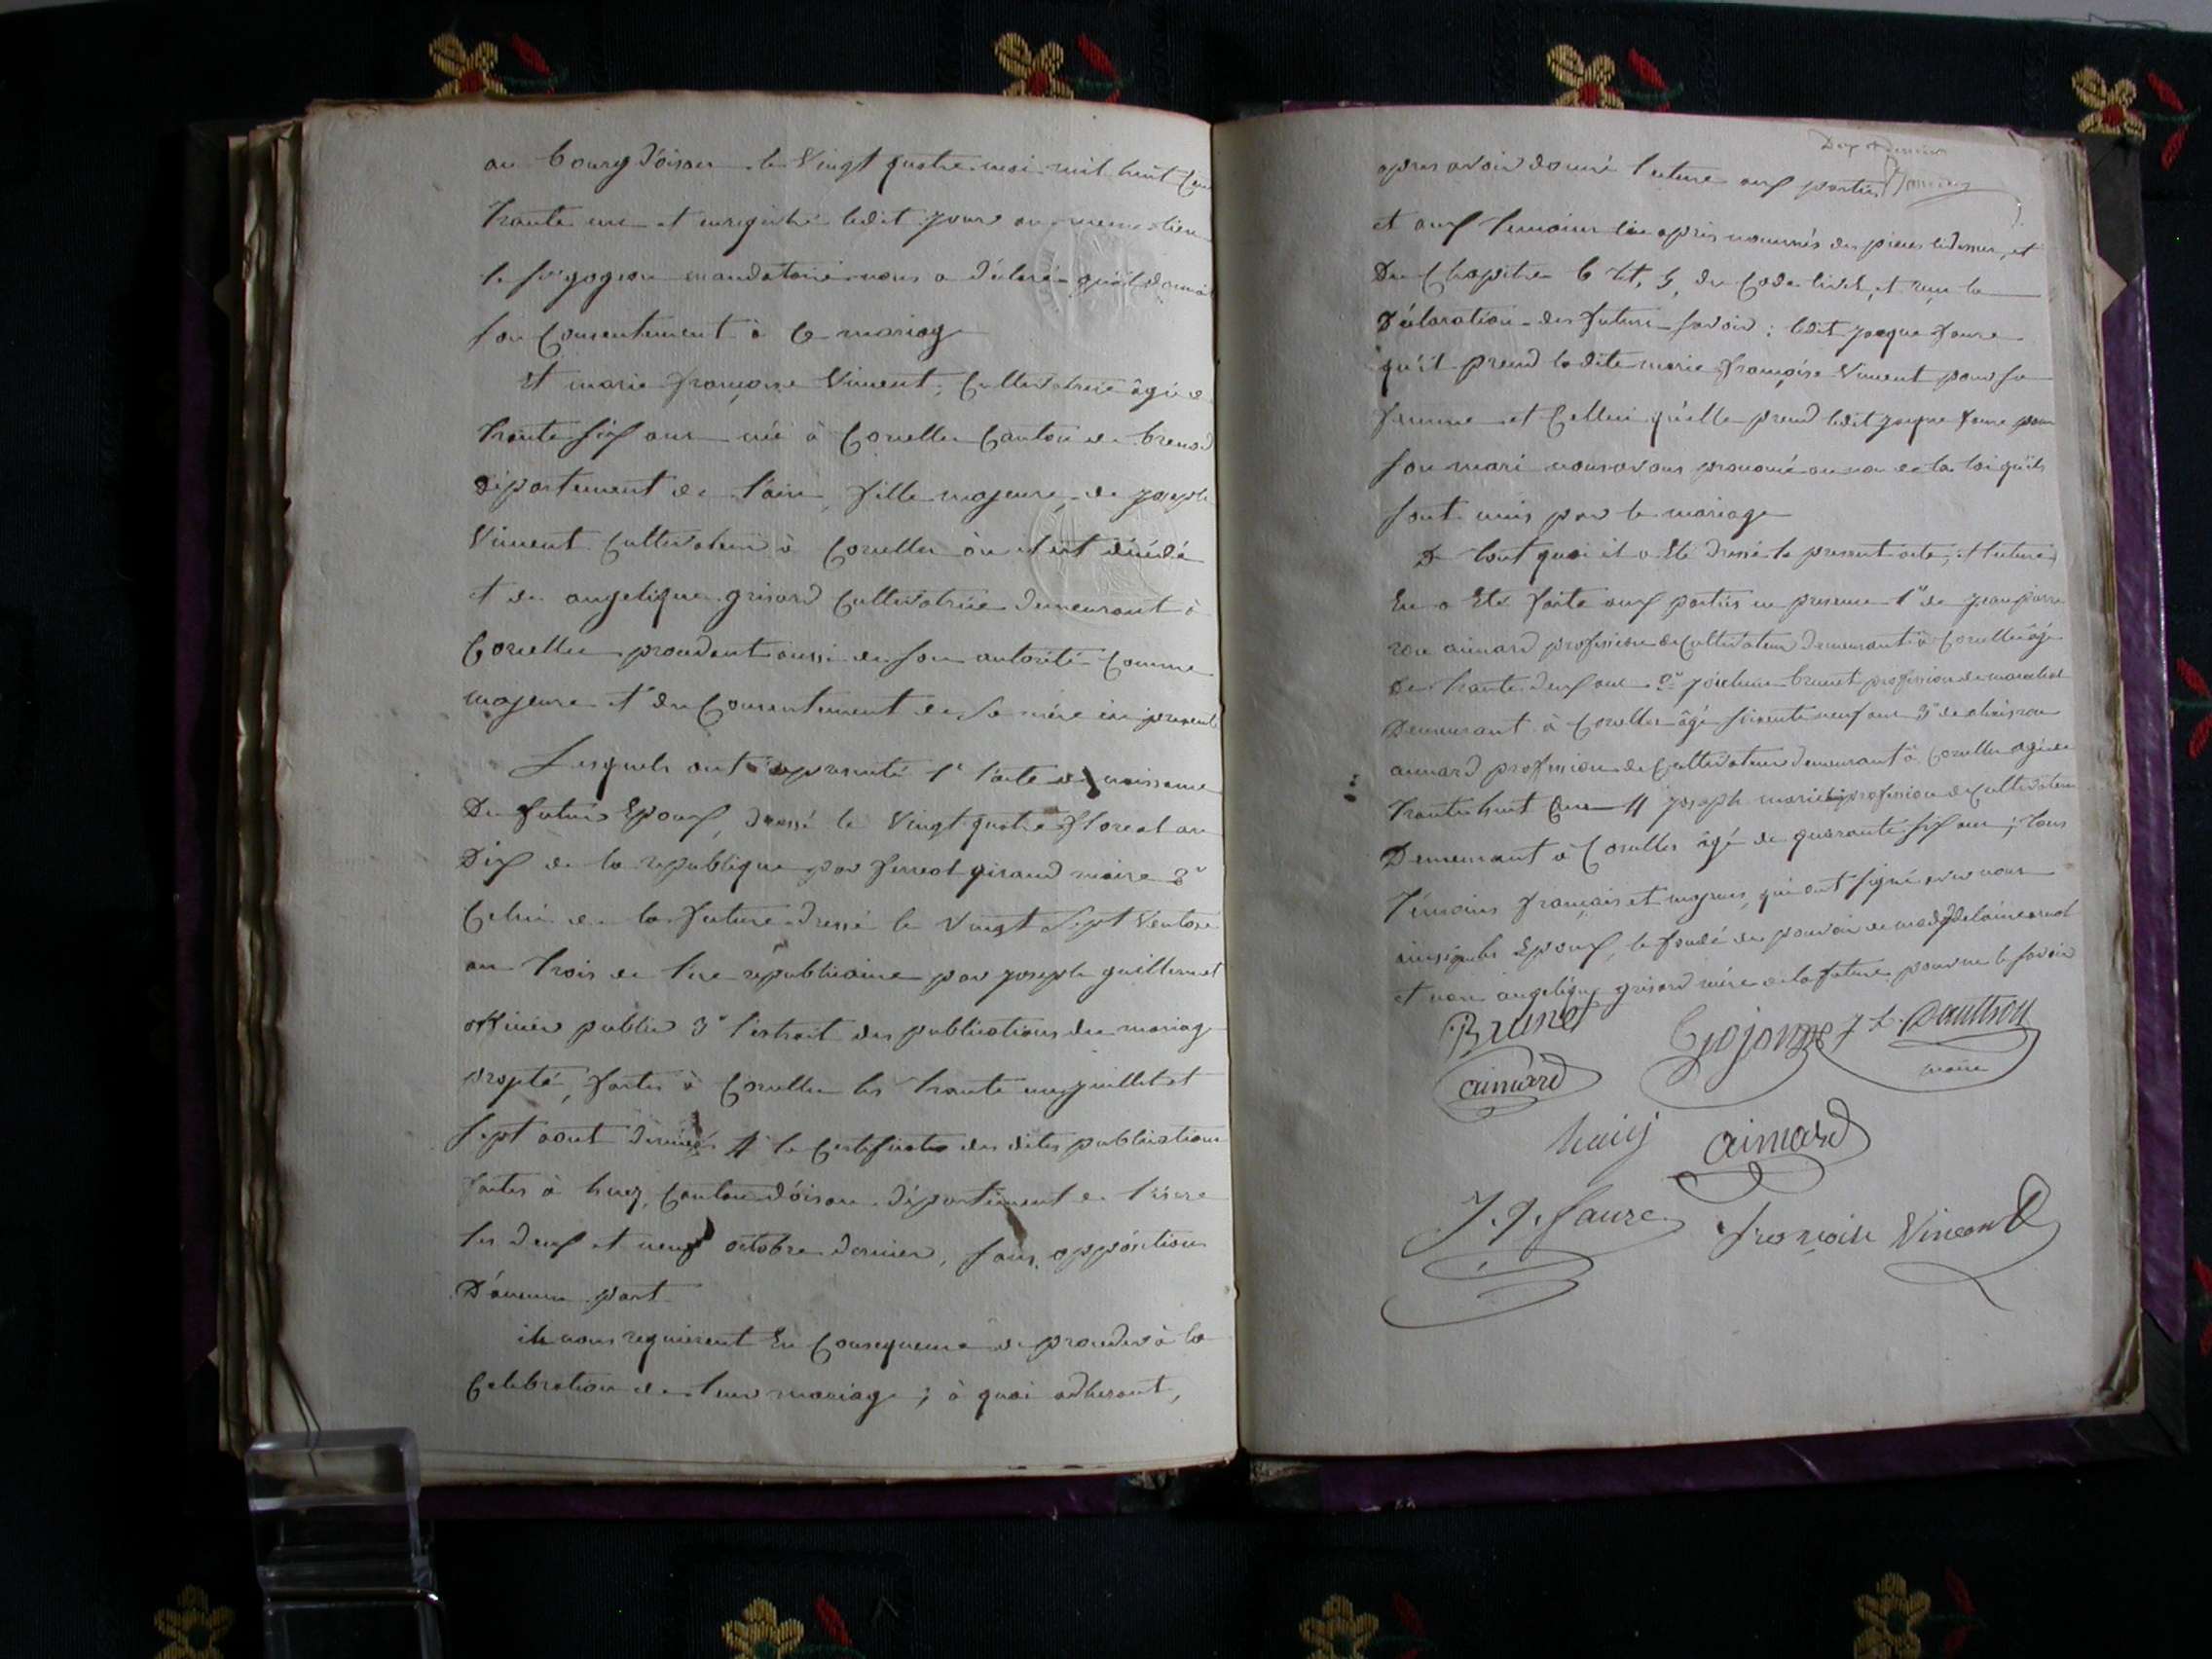 au bourg d'oisan le Vingt quatre mai mil huit Cent
trante un et enrégistré ledit jour au meme lieu
le Sr gogeon mandatoire nous a déclaré qu'il donnait
son Consentement à Ce mariag
Et marie françoise Vincent, Cultivatrice âgée de
trante six ans née à Corcelles Canton de brenod
département de l'ain, fille majeure de joseph
Vincent Cultivateur à Corcelles où il est décédé
et de angelique grisard Cultivatrice demeurant à
Corcelles procedant aussi de son autorité Comme
majeure et du Consentement de sa mère ici presente
Lesquels ont representé 1° l'acte de naissance
Du futur Epoux, dressé le Vingt quatre floreal an
Dix de la republique par ferreol giraud maire 2°
Celui de la future dressé le Vingt Sept Ventose
an trois de l'ere republicaine par joseph guillermet
officier public 3° l'extrait des publications du mariag
projeté, faites à Corcelles les trante un juillet et
sept aout dernier 4° le Certificat des dites publications
faites à huez, Canton d'oisan département de l'isere
les deux et neuf octobre dernier, sans opposition
D'aucune part
ils nous requierent En Consequence de proceder à la
Celebration de leur mariage ; à quoi adherant,
apres avoir donné lecture aux parties
et aux temoins ci apres nommés des pieces cidessus, et
Du Chapitre 6 tit. 5, du Code Civil, et reçu la
Déclaration des futurs savoir : ledit jacque faure
qu'il prend ladite marie françoise Vincent pour sa
femme et Celleci qu'elle prend ledit jacque faure pour
son mari nous avons prononcé au nom de la loi qu'ils
sont unis par le mariage
De tout quoi il a Eté dressé le present acte, et lecture
En a Eté faite aux parties en presence 1° de jean pierre
aimard profession de Cultivateur demeurant à Corcelles âgé
De trante deux ans 2° brunet profession de marechal
Demeurant à Corcelles âgé soixante neuf ans 3°
aimard profession de Cultivateur demeurant à Corcelles agé de
trante huit ans 4° joseph profession de Cultivateur
Demeurant à Corcelles âgé de quarante six ans ; tous
témoins français et requis, qui ont signé avec nous
ainsi que les Epoux, le fondé de pouvoir de
et non angelique grisard mère de la future pour ne le savoir
Brunet
aimard
maire
aimard
J. J. faure
françoise Vincent